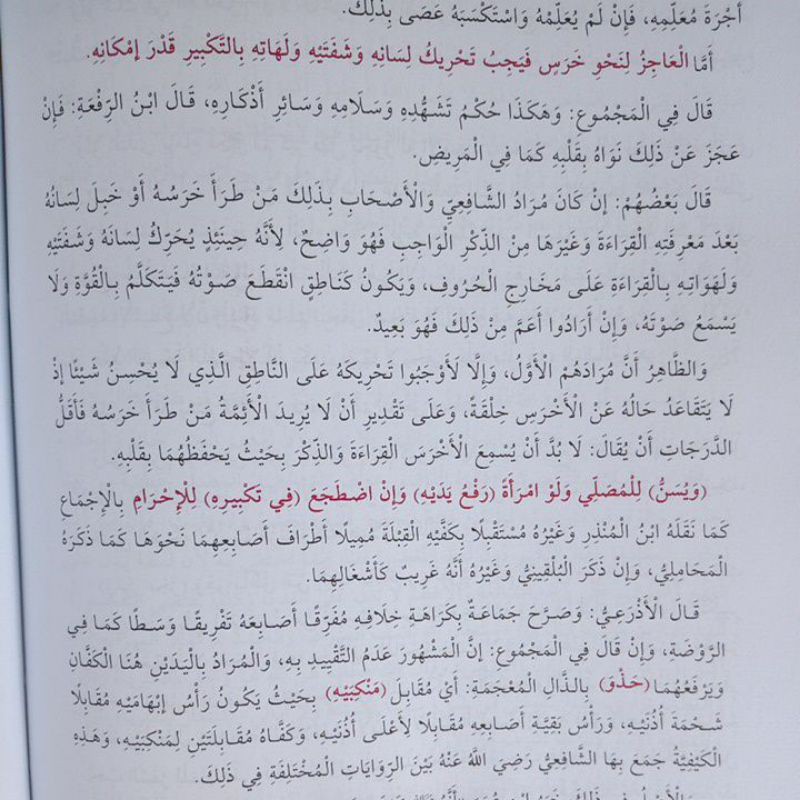 أُجْرَةَ مُعَلِّمِهِ، فَإِنْ لَمْ يُعَلِّمْهُ وَاسْتَكْسَبَهُ عَصَى بِذَلِكَ.
أَمَّا الْعَاجِزُ لِنَحْوِ خَرَسٍ فَيَجِبُ تَحْرِيكُ لِسَانِهِ وَشَفَتَيْهِ وَلَهَاتِهِ بِالتَّكْبِيرِ قَدْرَ إمْكَانِهِ.
قَالَ فِي الْمَجْمُوعِ: وَهَكَذَا حُكْمُ تَشَهُّدِهِ وَسَلَامِهِ وَسَائِرِ أَذْكَارِهِ، قَالَ ابْنُ الرِّفْعَةِ: فَإِنْ
عَجَزَ عَنْ ذَلِكَ نَوَاهُ بِقَلْبِهِ كَمَا فِي الْمَرِيضِ.
قَالَ بَعْضُهُمْ: إنْ كَانَ مُرَادُ الشَّافِعِيِّ وَالْأَصْحَابِ بِذَلِكَ مَنْ طَرَأَ خَرَسُهُ أَوْ خَبِلَ لِسَانُهُ
بَعْدَ مَعْرِفَتِهِ الْقِرَاءَةَ وَغَيْرَهَا مِنْ الذِّكْرِ الْوَاجِبِ فَهُوَ وَاضِحٌ، لِأَنَّهُ حِينَئِذٍ يُحَرِّكُ لِسَانَهُ وَشَفَتَيْهِ
وَلَهَوَاتِهِ بِالْقِرَاءَةِ عَلَى مَخَارِجِ الْحُرُوفِ، وَيَكُونُ كَنَاطِقٍ انْقَطَعَ صَوْتُهُ فَيَتَكَلَّمُ بِالْقُوَّةِ وَلَا
يَسْمَعُ صَوْتَهُ، وَإِنْ أَرَادُوا أَعَمَّ مِنْ ذَلِكَ فَهُوَ بَعِيدٌ.
وَالظَّاهِرُ أَنَّ مُرَادَهُمْ الْأَوَّلُ، وَإِلَّا لَأَوْجَبُوا تَحْرِيكَهُ عَلَى النَّاطِقِ الَّذِي لَا يُحْسِنُ شَيْئًا إذْ
لَا يَتَقَاعَدُ حَالُهُ عَنْ الْأَخْرَسِ خِلْقَةً، وَعَلَى تَقْدِيرِ أَنْ لَا يُرِيدَ الْأَئِمَّةُ مَنْ طَرَأَ خَرَسُهُ فَأَقَلُّ
الدَّرَجَاتِ أَنْ يُقَالَ: لَا بُدَّ أَنْ يُسْمِعَ الْأَخْرَسَ الْقِرَاءَةَ وَالذِّكْرَ بِحَيْثُ يَحْفَظُهُمَا بِقَلْبِهِ.
(وَيُسَنُّ) لِلْمُصَلِّي وَلَوْ امْرَأَةً (رَفْعُ يَدَيْهِ) وَإِنْ اضْطَجَعَ (فِي تَكْبِيرِهِ) لِلْإِحْرَامِ بِالْإِجْمَاعِ
كَمَا نَقَلَهُ ابْنُ الْمُنْذِرِ وَغَيْرُهُ مُسْتَقْبِلًا بِكَفَّيْهِ الْقِبْلَةَ مُمِيلًا أَطْرَافَ أَصَابِعِهِمَا نَحْوَهَا كَمَا ذَكَرَهُ
الْمَحَامِلِيُّ، وَإِنْ ذَكَرَ الْبُلْقِينِيُّ وَغَيْرُهُ أَنَّهُ غَرِيبٌ كَأَشْغَالِهِمَا.
قَالَ الْأَذْرَعِيُّ: وَصَرَّحَ جَمَاعَةٌ بِكَرَاهَةِ خِلَافِهِ مُفَرِّقًا أَصَابِعَهُ تَفْرِيقًا وَسَطًا كَمَا فِي
الرَّوْضَةِ، وَإِنْ قَالَ فِي الْمَجْمُوعِ: إنَّ الْمَشْهُورَ عَدَمُ التَّقْيِيدِ بِهِ، وَالْمُرَادُ بِالْيَدَيْنِ هُنَا الْكَفَّانِ
وَيَرْفَعُهُمَا (حَذْوَ) بِالذَّالِ الْمُعْجَمَةِ: أَيْ مُقَابِلَ (مَنْكِبَيْهِ) بِحَيْثُ يَكُونُ رَأْسُ إبْهَامَيْهِ مُقَابِلًا
شَحْمَةَ أُذُنَيْهِ، وَرَأْسُ بَقِيَّةِ أَصَابِعِهِ مُقَابِلًا لِأَعْلَى أُذُنَيْهِ، وَكَفَّاهُ مُقَابِلَتَيْنِ لِمَنْكِبَيْهِ، وَهَذِهِ
الْكَيْفِيَّةُ جَمَعَ بِهَا الشَّافِعِيُّ رَضِيَ اللَّهُ عَنْهُ بَيْنَ الرِّوَايَاتِ الْمُخْتَلِفَةِ فِي ذَلِكَ.